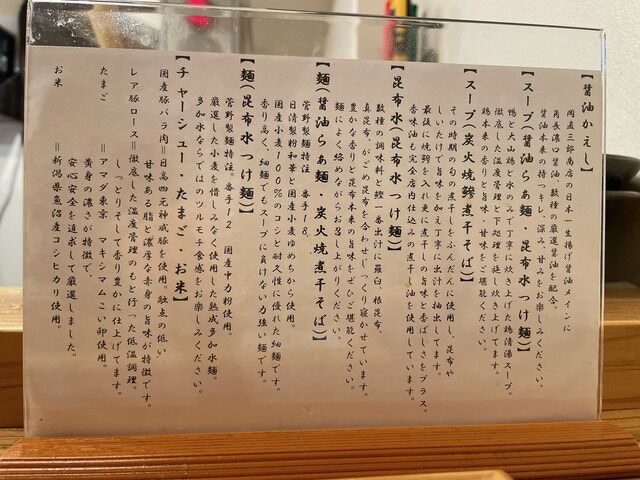 【醤油かえし】
岡直三郎商店の日本一生揚げ醤油メインに
角長濃口醤油、数種の厳選醤油を配合。
醤油本来の持つキレ、深み、甘みをお楽しみください。
【スープ(醤油らぁ麺・昆布水つけ麺)】
鴨と大山鶏と水のみで丁寧に炊き上げた鶏清湯スープ。
徹底した温度管理と下処理を施し炊き上げてます。
鶏本来の香りと旨味・甘味をご堪能ください。
【スープ(炭火焼鯵煮干そば)】
その時期の旬の煮干しをふんだんに使用し、昆布や
しいたけで旨味を加え丁寧に出汁を抽出してます。
最後に焼鯵を入れ更に煮干しの旨味と香ばしさをプラス。
香味油も完全店内仕込みの煮干し油を使用しています。
【昆布水(昆布水つけ麺)】
数種の調味料と鰹一番出汁に羅臼、根昆布、
真昆布、がごめ昆布を合わせじっくり寝かせています。
豊かな香りと昆布本来の旨味をぜひご堪能ください。
麺によく絡めながらお召し上がりください。
【麺(醤油らぁ麺・炭火焼煮干そば)】
菅野製麺特注、番手18。
日清製粉和華と国産小麦ゆめちから使用。
国産小麦100%のコシと耐久性に優れた細麺です。
香り高く、細麺でもスープに負けない力強い麺です。
【麺(昆布水つけ麺)】
菅野製麺特注、番手12 国産中力粉使用。
厳選した小麦を惜しみなく使用した熟成多加水麺。
多加水ならではのツルモチ食感をお楽しみください。
【チャーシュー・たまご・お米】
国産豚バラ肉＝日高四元神威豚を使用。融点の低い
甘味ある脂と濃厚な赤身の旨味が特徴です。
レア豚ロース＝徹底した温度管理のもと行った低温調理。
しっとりそして香り豊かに仕上げてます。
たまご ＝アマダ東京 マキシマムこい卵使用。
黄身の濃さが特徴で、
安心安全を追求して厳選しました。
お米 ＝新潟県魚沼産コシヒカリ使用。